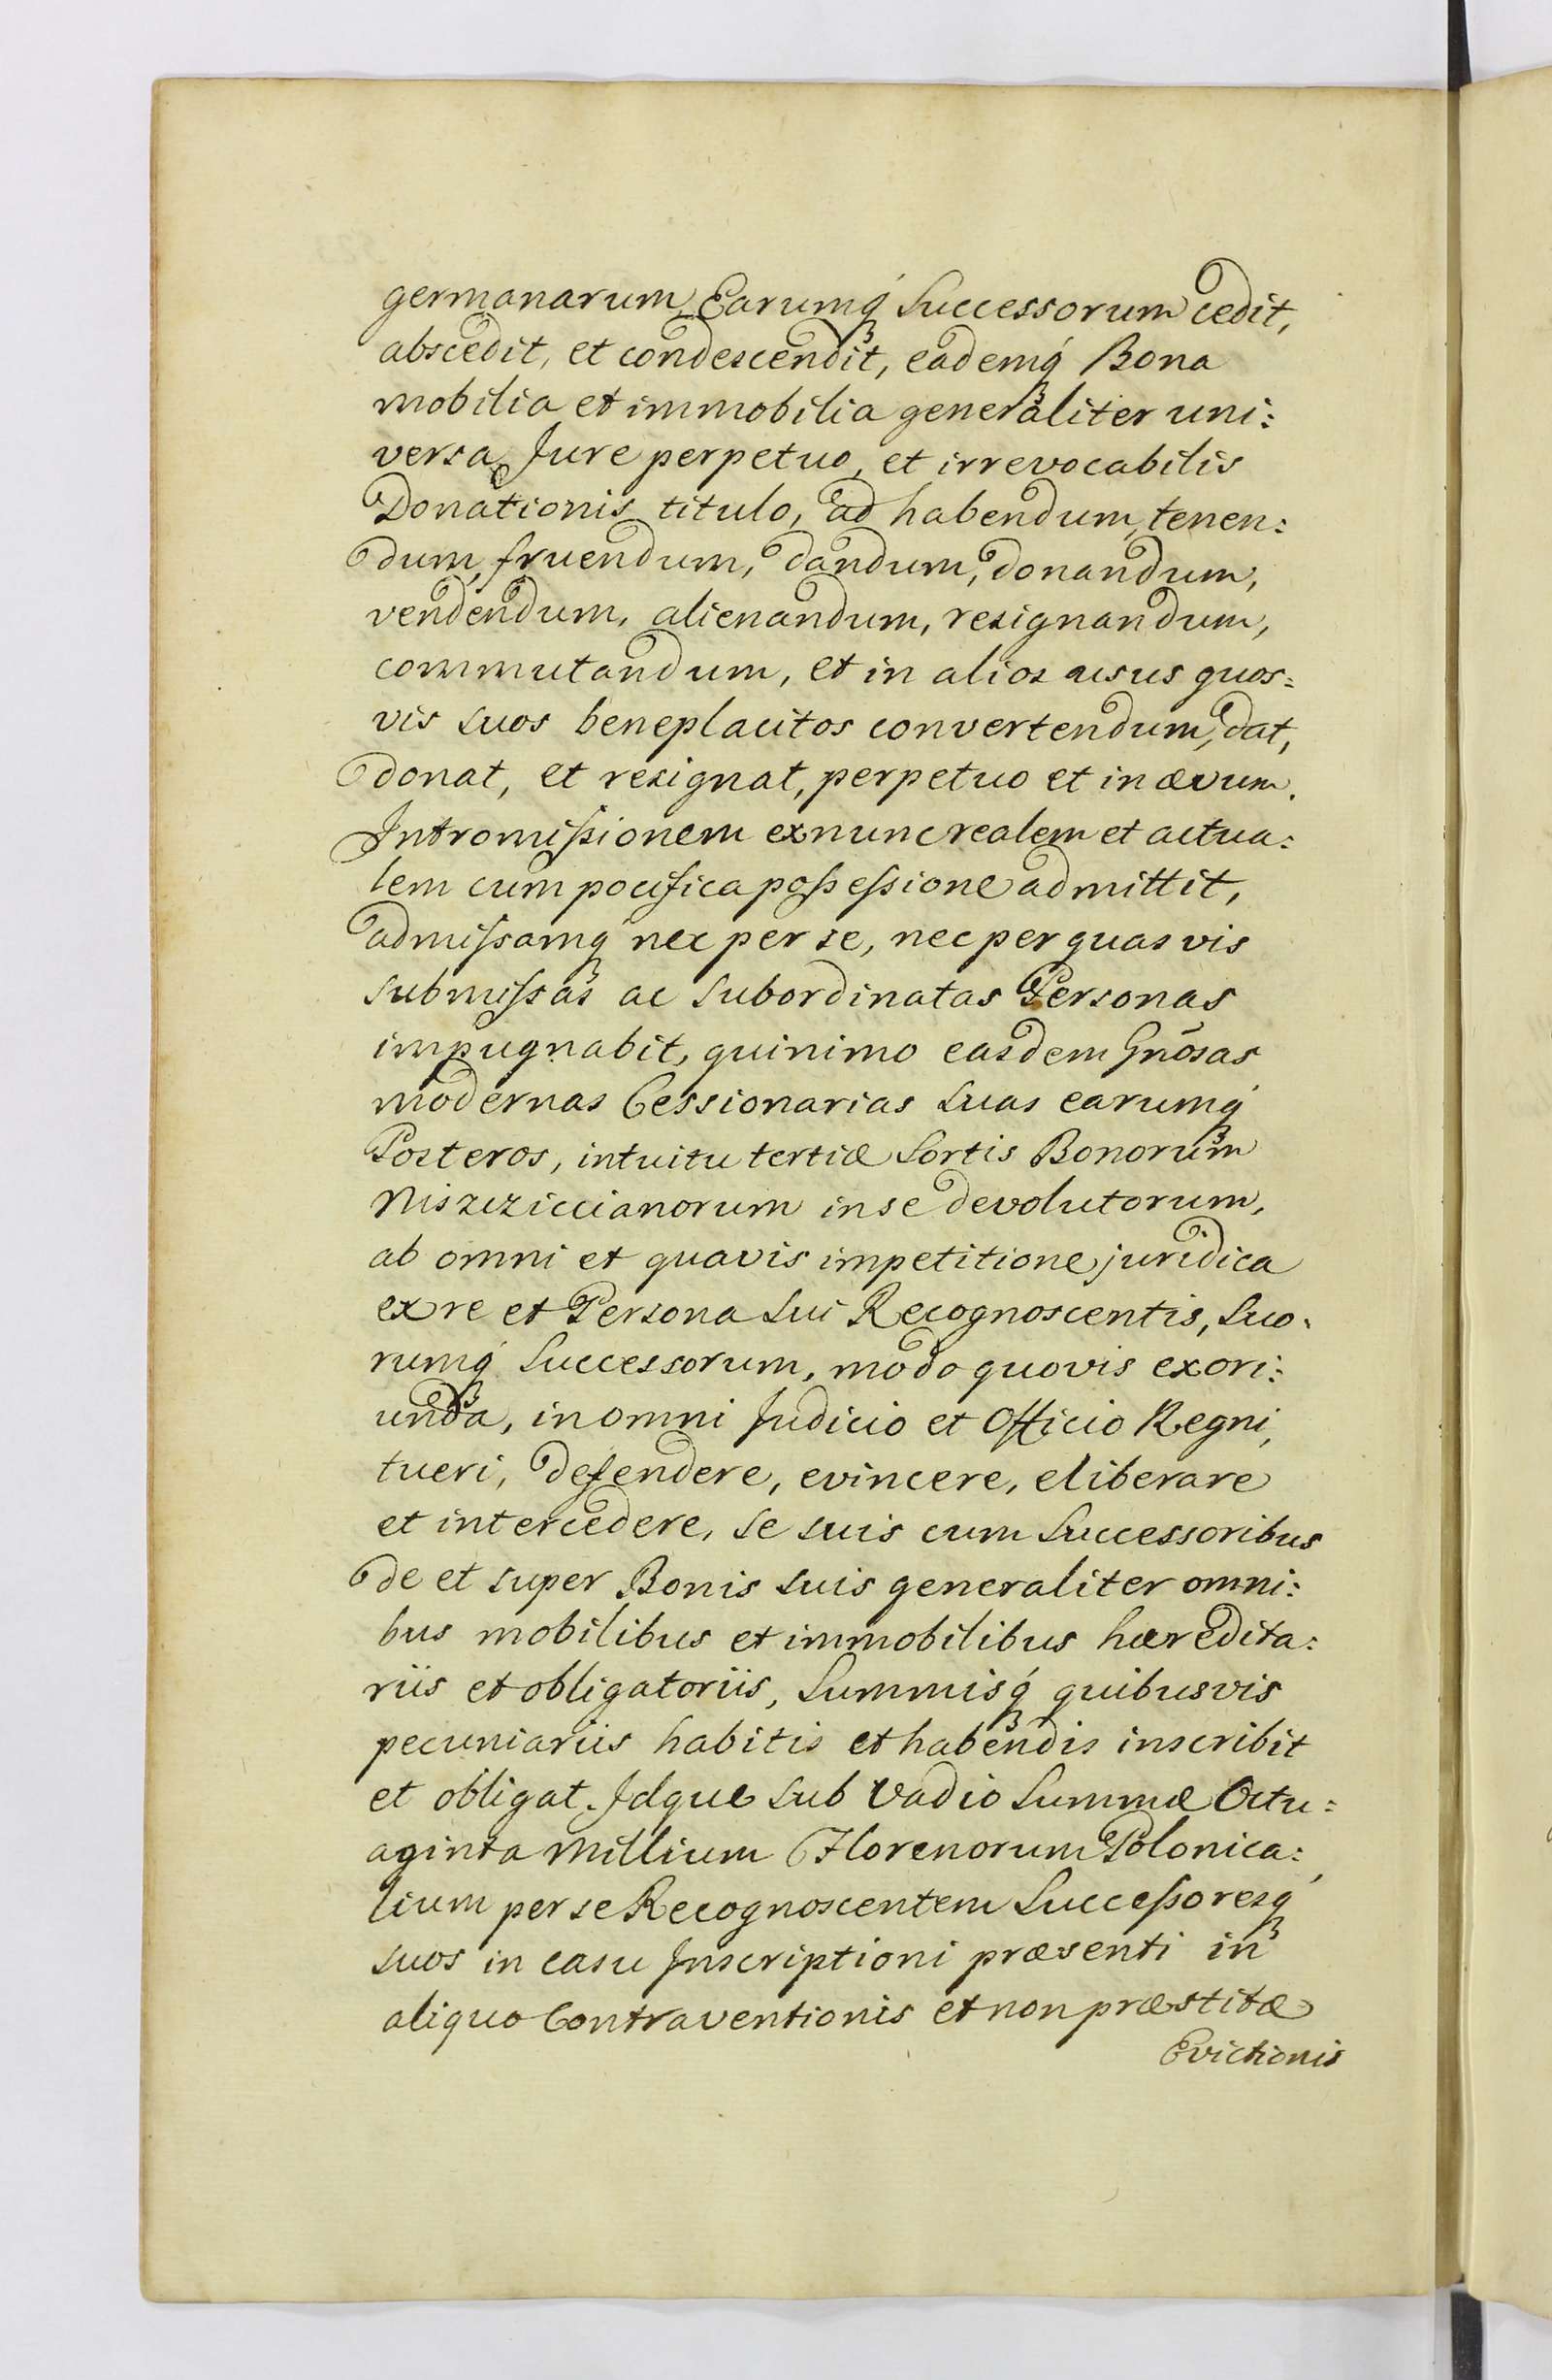 germanarum, Earumq́ Successorum cedit,
abscedit, et condescendit, eademq́ Bona
mobilia et immobilia generaliter uni:
versa, Jure perpetuo, et irrevocabilis
Donationis titulo, ad habendum, tenen:
dum, fruendum, dandum, donandum,
vendendum, alienandum, resignandum,
commutandum, et in alios usus quos:
vis suos beneplacitos convertendum, dat,
donat, et resignat, perpetuo et in ævum.
Intromißionem exnunc realem et actua:
lem cum pacifica poßeßione admittit,
admißamq́ nec per se, nec per quasvis
submißas ac subordinatas Personas
impugnabit, quinimo easdem Gnōsas
modernas Cessionarias suas earumq́
Posteros, intuitu tertiæ Sortis Bonorum
Niszcziccianorum in se devolutorum,
ab omni et quavis impetitione juridica
ex re et Persona sui Recognoscentis, Suo:
rumq́ Successorum, modo quovis exori:
unda, in omni Judicio et Officio Regni,
tueri, defendere, evincere, eliberare
et intercedere, se suis cum Successoribus
de et super Bonis suis generaliter omni:
bus mobilibus et immobilibus hæredita:
riis et obligatoriis, Summisq́ quibusvis
pecuniariis habitis et habendis inscribit
et obligat. Idque sub Vadio Summæ Octu:
aginta Millium Florenorum Polonica:
lium per se Recognoscentem Succeßoresq́
suos in casu Inscriptioni præsenti in
aliquo Contraventionis et non præstitæ
Evictionis